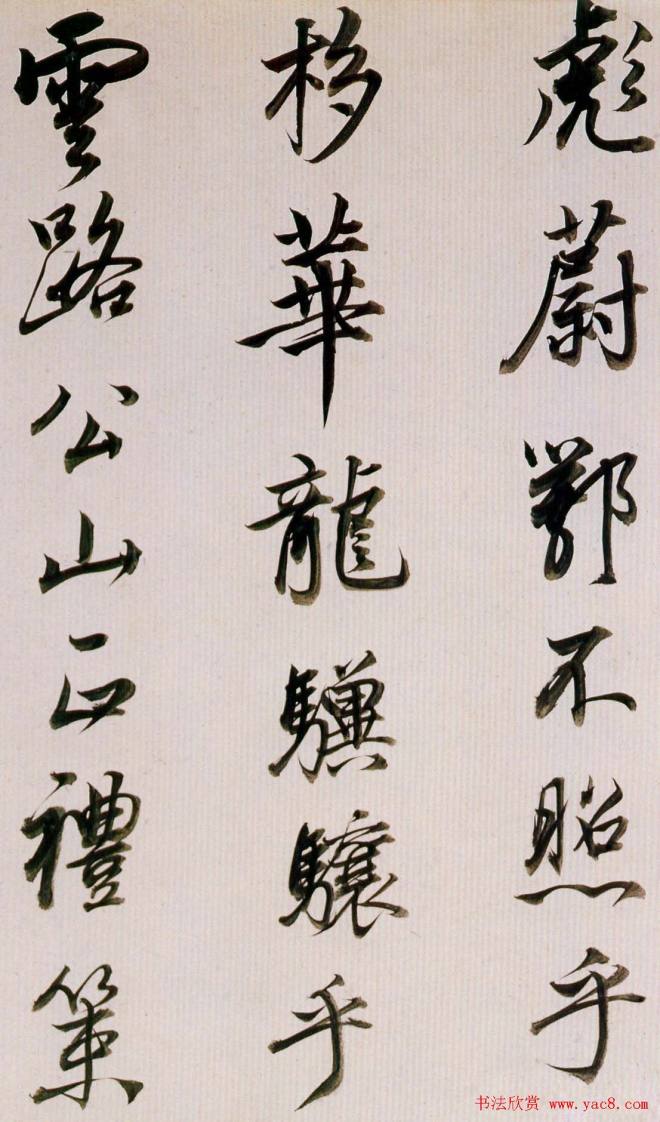 彪蔚鄂不照乎
栘華龍驥驤乎
雲路公山正禮策
书法欣赏 www.yac8.com